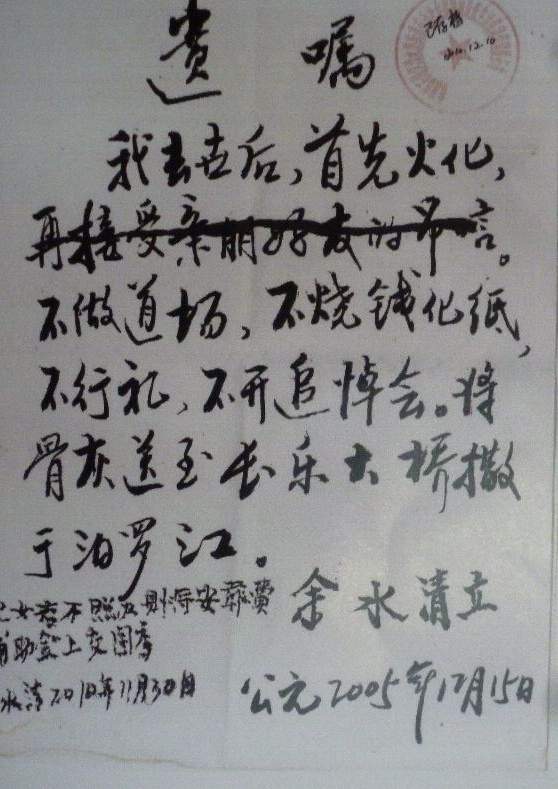 遗嘱
已存档
2010.12.10
我去世后，首先火化，
再接受亲朋好友的吊言。
不做道场，不烧钱化纸，
不行礼，不开追悼会。将
骨灰送至长乐大桥撒
于汨罗江。
余水清立
公元2005年12月15日
女若不照办则将安葬费
补助金上交国家
水清2010年11月30日